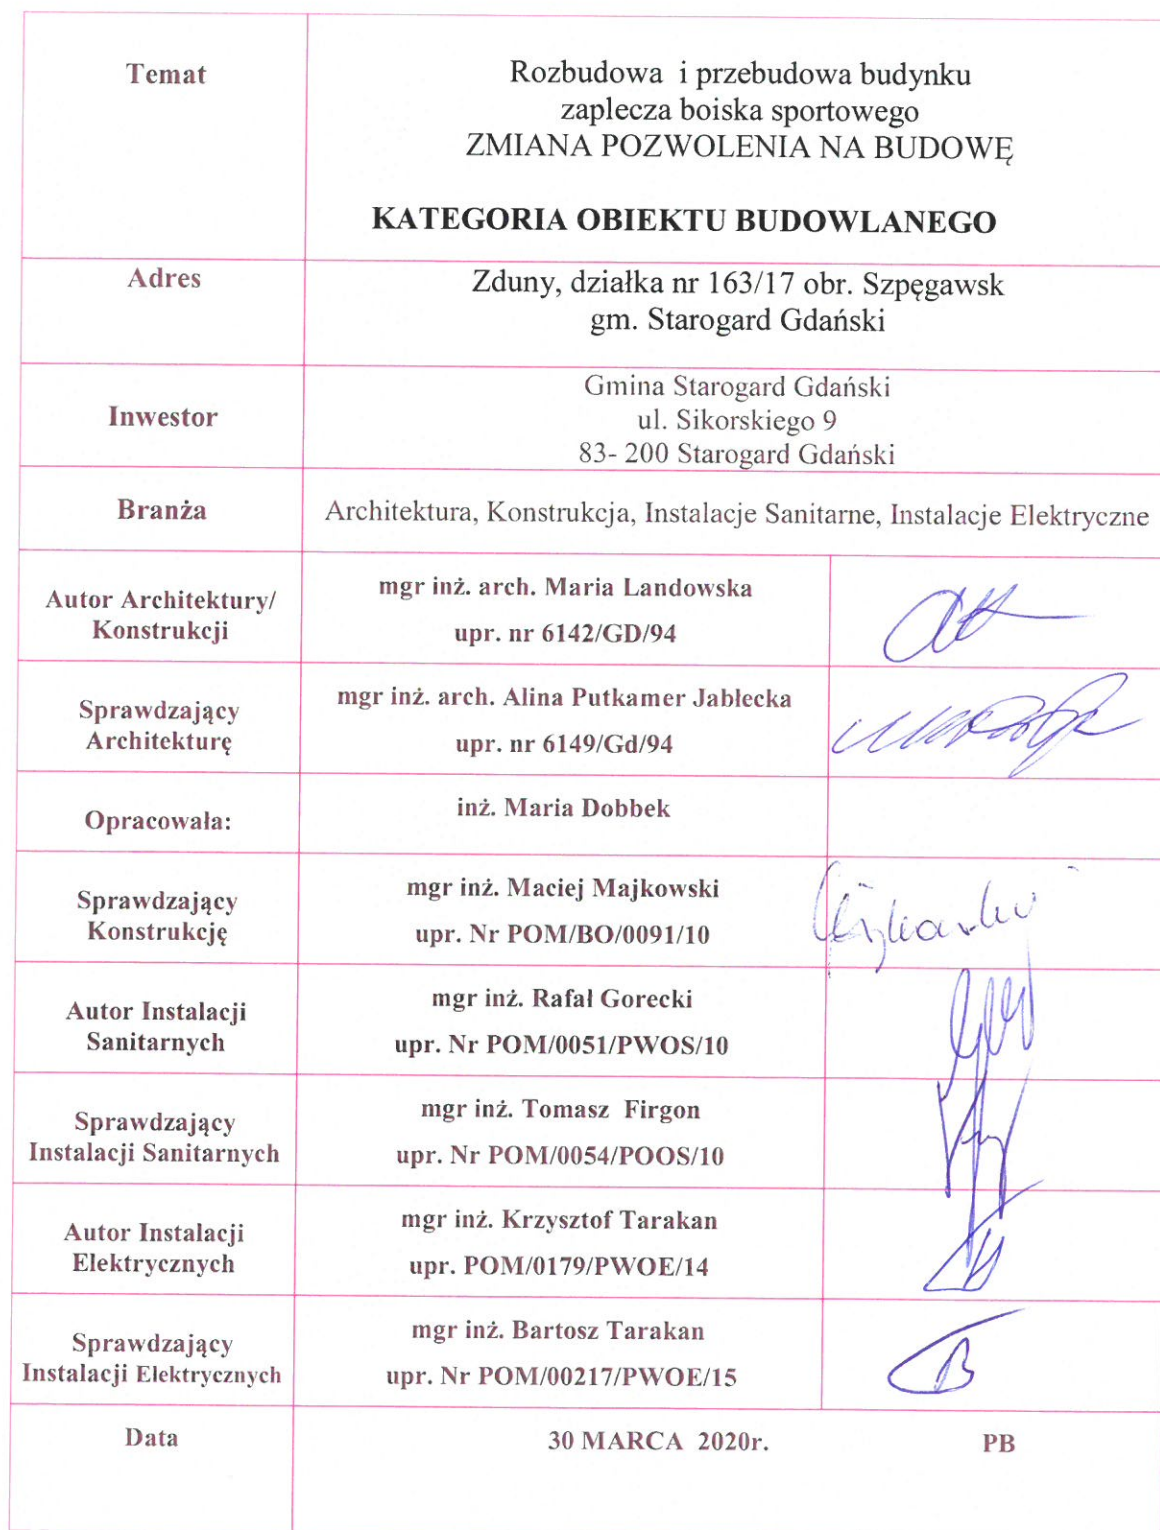 Temat
Rozbudowa i przebudowa budynku
zaplecza boiska sportowego
ZMIANA POZWOLENIA NA BUDOWĘ
KATEGORIA OBIEKTU BUDOWLANEGO
Adres
Zduny, działka nr 163/17 obr. Szpęgawsk
gm. Starogard Gdański
Inwestor
Gmina Starogard Gdański
ul. Sikorskiego 9
83- 200 Starogard Gdański
Branża
Architektura, Konstrukcja, Instalacje Sanitarne, Instalacje Elektryczne
Autor Architektury/
Konstrukcji
mgr inż. arch. Maria Landowska
upr. nr 6142/GD/94
Sprawdzający
Architekturę
mgr inż. arch. Alina Putkamer Jabłecka
upr. nr 6149/Gd/94
Opracowała:
inż. Maria Dobbek
Sprawdzający
Konstrukcję
mgr inż. Maciej Majkowski
upr. Nr POM/BO/0091/10
Autor Instalacji
Sanitarnych
mgr inż. Rafał Gorecki
upr. Nr POM/0051/PWOS/10
Sprawdzający
Instalacji Sanitarnych
mgr inż. Tomasz Firgon
upr. Nr POM/0054/POOS/10
Autor Instalacji
Elektrycznych
mgr inż. Krzysztof Tarakan
upr. POM/0179/PWOE/14
Sprawdzający
Instalacji Elektrycznych
mgr inż. Bartosz Tarakan
upr. Nr POM/00217/PWOE/15
Data
30 MARCA 2020r.
PB